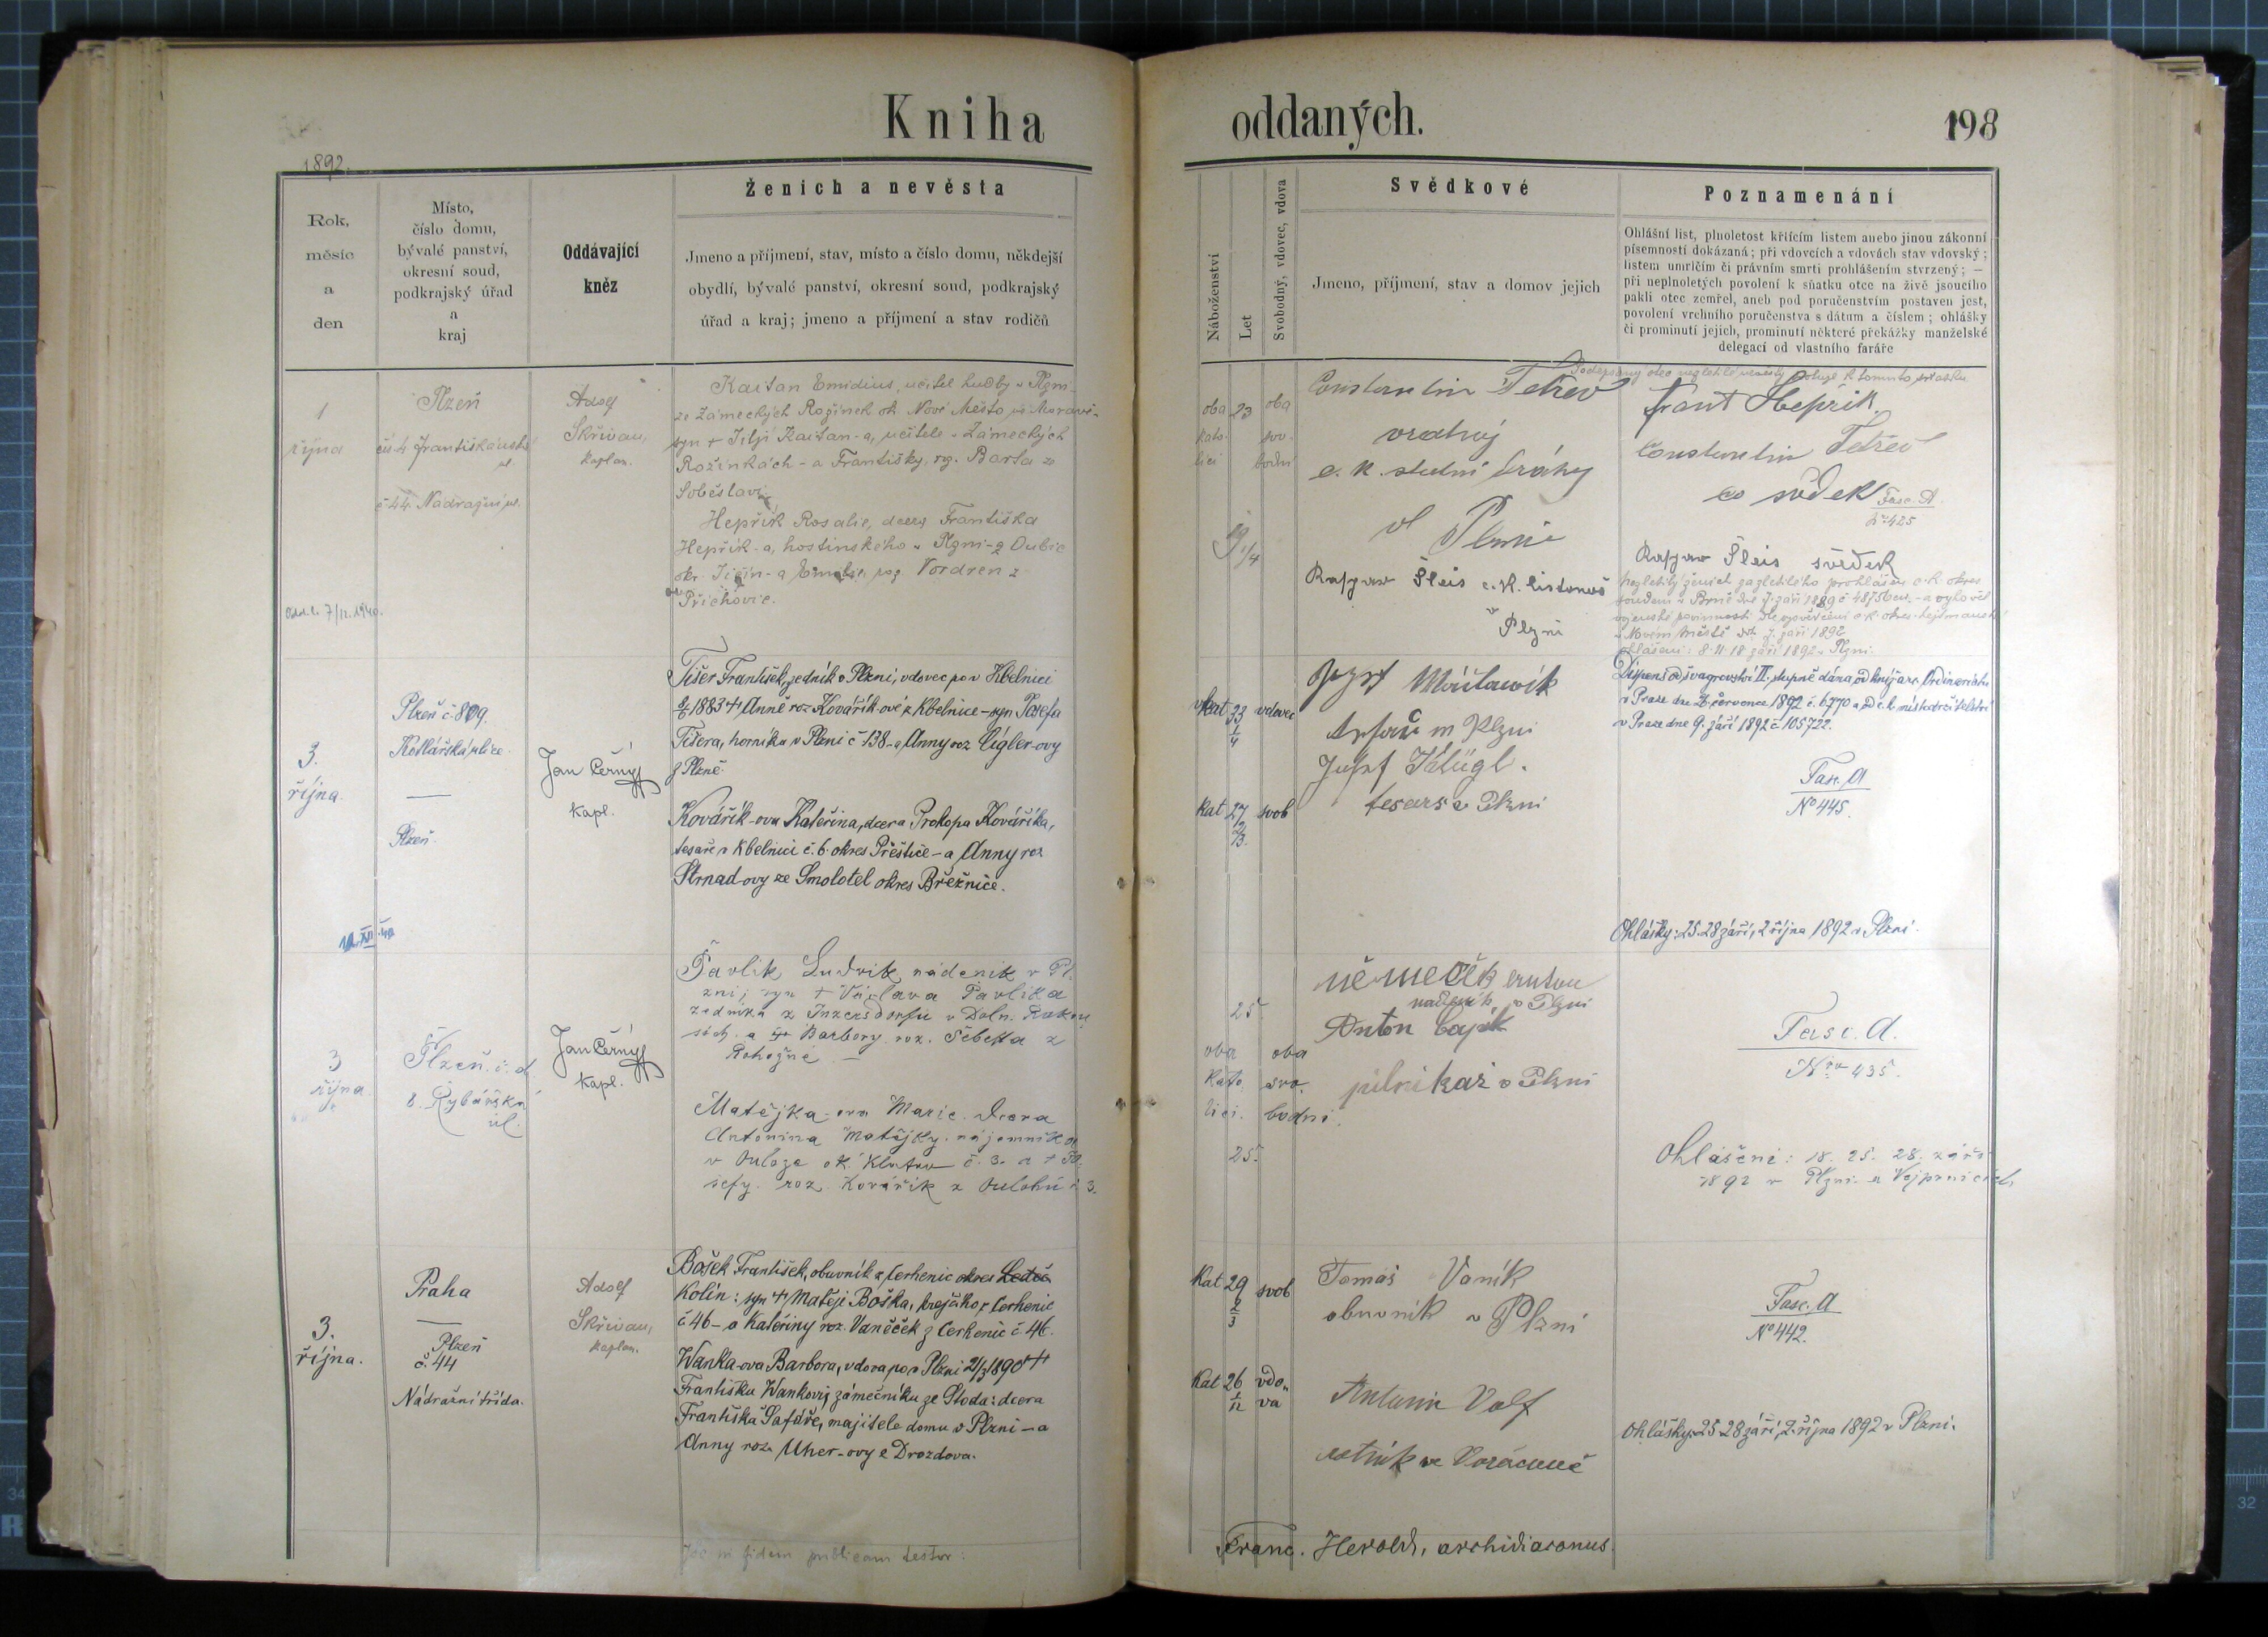 Kniha
oddaných.
198
1892.
Rok,
měsíc
a
den
Místo,
číslo domu,
bývalé panství,
okresní soud,
podkrajský úřad
a
kraj
Oddávající
kněz
Ženich a nevěsta
Jmeno a příjmení, stav, místo a číslo domu, někdejší
obydlí, bývalé panství, okresní soud, podkrajský
úřad a kraj; jmeno a příjmení a stav rodičů
Náboženství
Let
Svobodný, vdovec, vdova
Svědkové
Jmeno, příjmení, stav a domov jejich
Poznamenání
Ohlášní list, plnoletost křticím listem anebo jinou zákonní
písemností dokázaná; při vdovcích a vdovách stav vdovský;
listem umrlčím či právním smrti prohlášením stvrzený; —
při neplnoletých povolení k sňatku otce na živě jsoucího
pakli otec zemřel, aneb pod poručenstvím postaven jest,
povolení vrchního poručenstva s dátum a číslem; ohlášky
či prominutí jejich, prominutí některé překážky manželské
delegací od vlastního faráře
1
října
Plzeň
č. 44 Nádražní
Adolf
Skřivan,
kaplan.
Kaitan Emidius, učitel hudby v Plzni
ze Zámeckých Rožínek ok. Nové Město
syn + Kaitan-a, učitele v Zámeckých
Rožínkách - a Františky, roz. Barta ze
Soběslavi
Hepřík Rosalie, dcera Františka
Hepřík-a, hostinského v Plzni - z Dubic
okr. Jičín - a roz. Vordren z
Příchovic.
oba
kato-
líci
23
oba
svo-
bodni
19 1/4
Constantin Tetřev
vratný
c. k. státní dráhy
v Plzni
Kaspar Šleis c. k. listonoš
v Plzni
Podepsaný otec nezletilé nevěsty k tomuto sňatku
Frant Hepřík
Constantin Tetřev
co svědek
Fasc. A
N° 425
Kaspar Šleis svědek
Nezletilý ženich za zletilého prohlášen c. k. okres
soudem v Brně dne 7. září 1889 č.
v Novém Městě 7. září 1892
ohlášeni: 8. 11. 18 září 1892 v Plzni.
3.
října.
Plzeň č. 809.
Kotlářská ulice.
—
Plzeň.
Jan Černý
kapl.
Tišer František, zedník v Plzni, vdovec po v Kbelnici
1883 + Anně roz Kovářík-ové z Kbelnice - syn Josefa
Tišera, horníka v Plzni č 138 - a Anny roz Cígler-ovy
z Plzně.
Kovářík-ova Kateřina, dcera Prokopa Kováříka,
tesaře v Kbelnici č. 6. okres Přeštice - a Anny roz
Strnad-ovy ze Smolotel okres Březnice.
kat 33 vdovec
1/4
kat 27 svob
2/3
v Plzni
Josef Klügl.
tesař v Plzni
Dispens od švagrovství II. stupně dána od kníž. arc. Ordinariatu
v Praze dne července 1892 č. 6770 a od c. k. místodržitelství
v Praze dne 9. září 1892 č 105722.
Fasc. A
N° 445.
Ohlášky: 25. 28 září, 2 října 1892 v Plzni.
3
října
Plzeň. č. d.
8. Rybářská
ul.
Jan Černý
kapl.
Pavlík Ludvík nádeník v Pl-
zni, syn + Václava Pavlíka
zedníka z Inzersdorfu v Doln. Rakou
sích. a Barbory roz. Šebesta z
Rohozné —
Matějka-ova Marie. dcera
Antonína Matějky. nájemníka
v ok. Klatov č. 3. a + Jo
sefy. roz. Kovářík z č 3.
25
oba oba
kato svo.
líci. bodni.
25.
Němeček Anton
nádeník v Plzni
Anton
pilnikař v Plzni
Fasc. A.
Nro 435.
Ohlášeni: 18. 25. 28. září
1892 v Plzni. a
3.
října.
Praha
—
Plzeň
č. 44
Nádražní třída.
Adolf
Skřivan,
kaplan.
Bošek František, obuvník z Cerhenic okres Ledeč
Kolín: syn + Matěje Boška, krejčího z Cerhenic
č 46 - a Kateřiny roz. Vaněček z Cerhenic č. 46.
Wanka-ova Barbora, vdova po v Plzni 2/3 1890 +
Františku Wankovi, zámečníku ze Stoda: dcera
Františka Šafáře, majitele domu v Plzni - a
Anny roz. Uher-ovy z Drozdova.
Kat 29 svob
2/3
Kat 26 vdo-
va
Tomáš Vaník
obuvník v Plzni
Antonín Volf
Fasc. A
N° 442.
Ohlášky: 25 28 září, 2. října 1892 v Plzni.
fidem publicam testor:
Franc. Herold, archidiaconus.